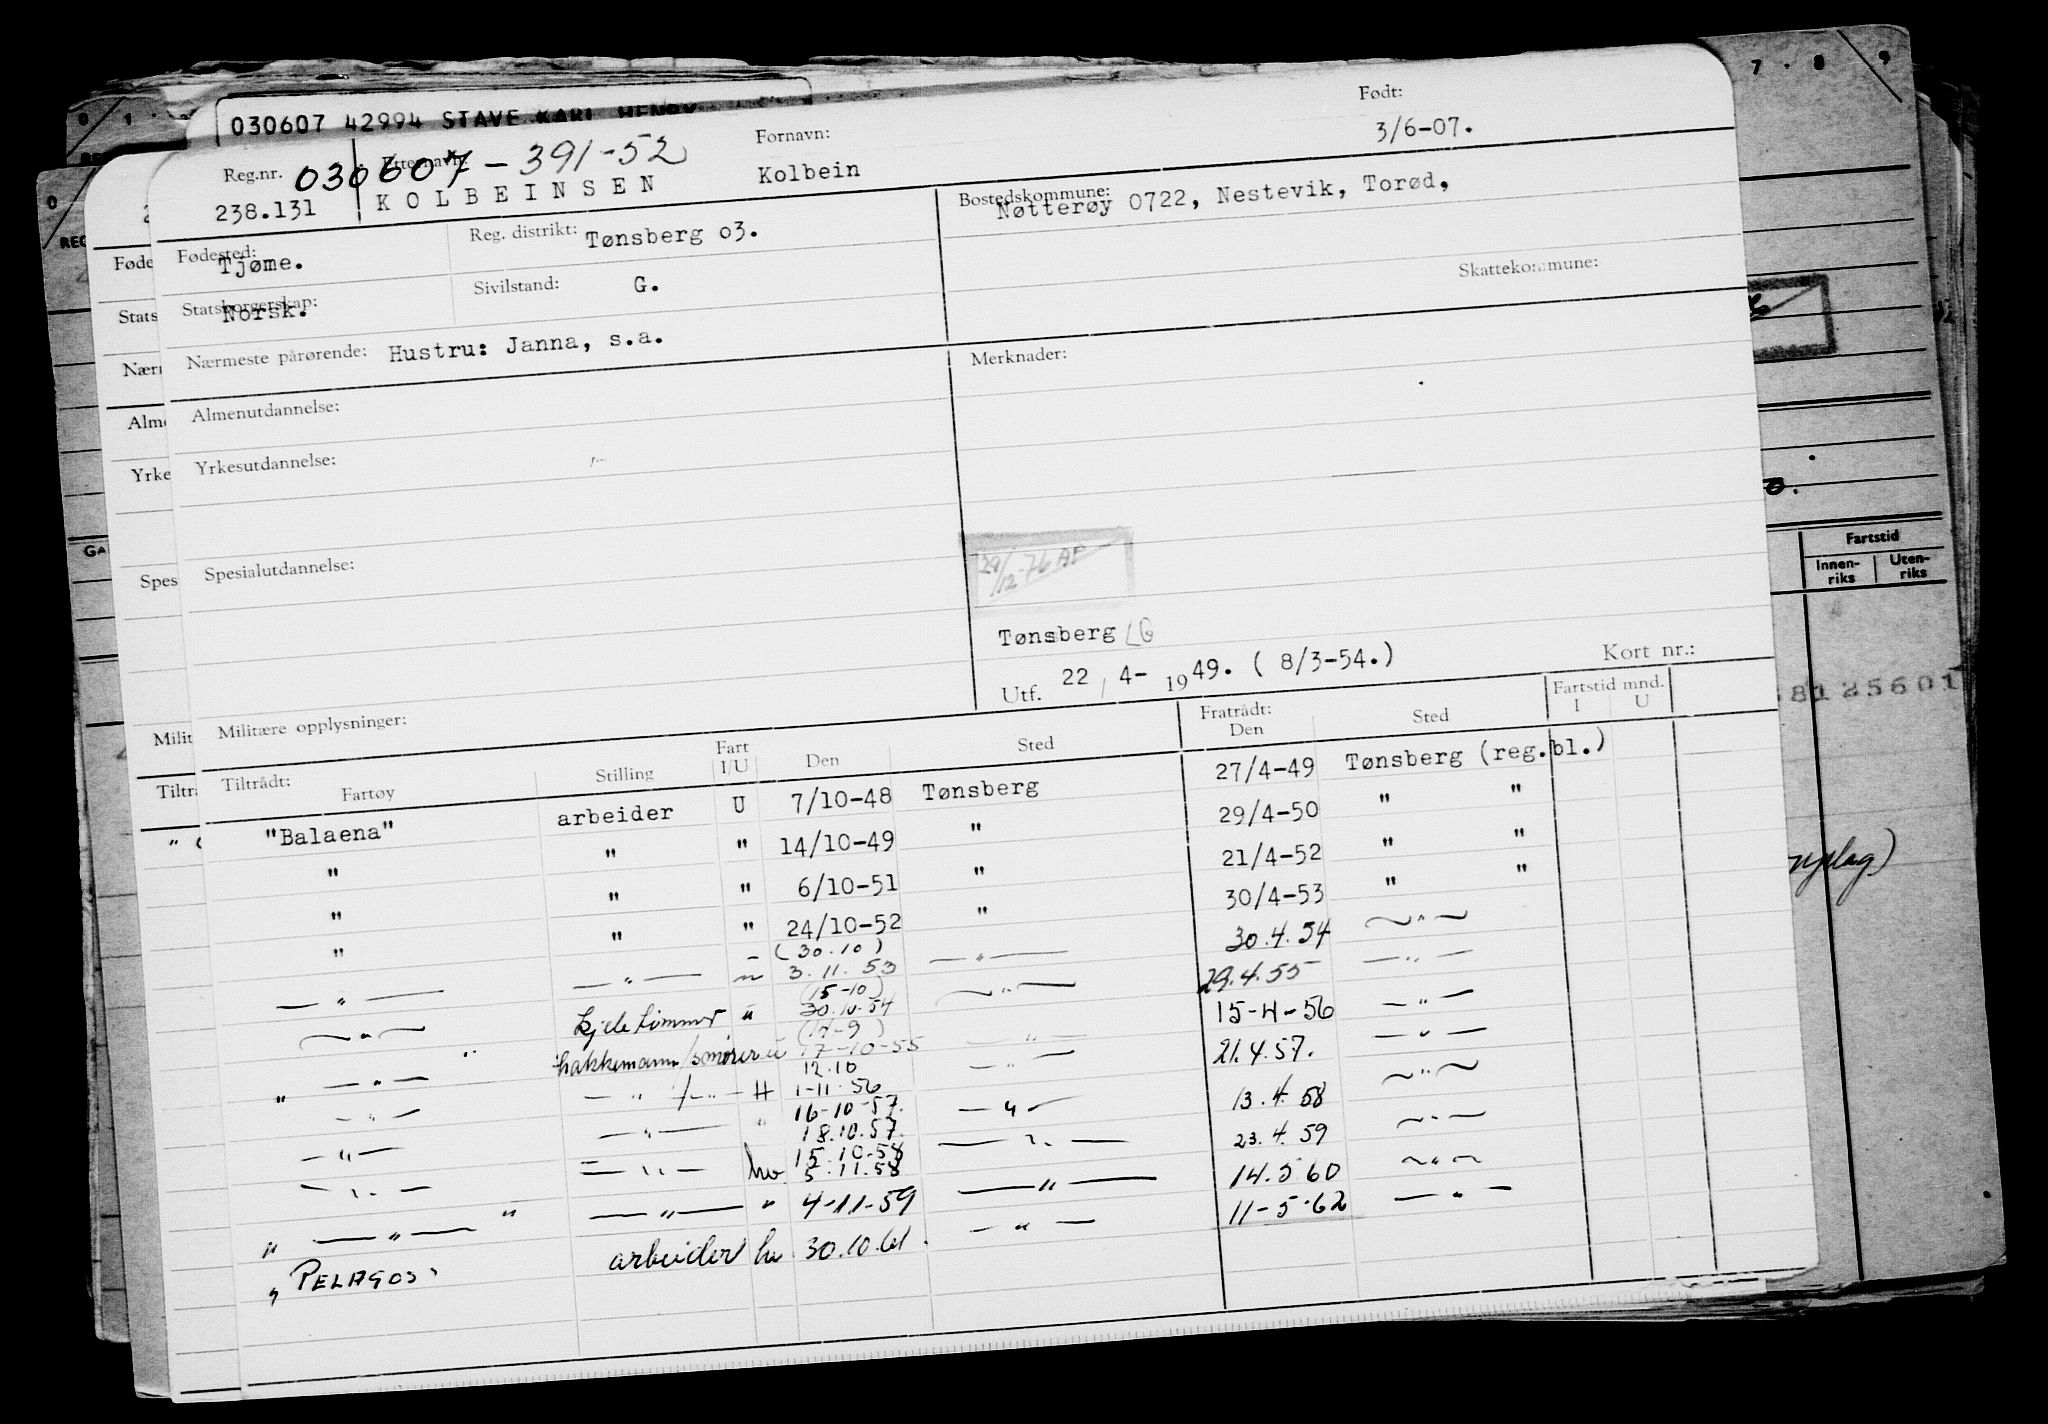 7 · 8 9
0 · 1 ·
030607 42994 STAVE KARL HENRY
Reg.nr. Etternavn: Fornavn: Født:
030607-391-52
238.131 KOLBEINSEN Kolbein 3/6-07.
Fødested: Tjøme.
Reg. distrikt: Tønsberg 03.
Bostedskommune: Nøtterøy 0722, Nestevik, Torød,
Statsborgerskap: Norsk.
Sivilstand: G.
Skattekommune:
Nærmeste pårørende: Hustru: Janna, s.a.
Merknader:
Almenutdannelse:
Yrkesutdannelse:
Spesialutdannelse:
29/12-76 AF
Tønsberg LG
Utf. 22 / 4- 1949. ( 8/3-54.)
Kort nr.:
Militære opplysninger:
Tiltrådt: Fratrådt: Fartstid mnd.
Fartøy Stilling Fart I/U Den Sted Den Sted I U
"Balaena" arbeider U 7/10-48 Tønsberg 27/4-49 Tønsberg (reg.bl.)
" " " 14/10-49 " 29/4-50 " "
" " " 6/10-51 " 21/4-52 " "
" " " 24/10-52 " 30/4-53 " "
(30.10)
— " — — " — " 3.11.53 — " — 30.4.54 — " —
(15-10)
— " — kjele tømmer " 30.10.54 — " — 29.4.55 — " —
(14-9)
" — " — " hakkemann/smører u 17-10-55 — " — 15-4-56 — " —
12.10
— " — — " — / — " — H 1-11-56 — " — 21.4.57. — " —
16-10-57.
— " — — " — " 18.10.57. — " — 13.4.58 — " —
15.10.58
— " — — " — hv 5.11.58 — " — 23.4.59 — " —
" — " — " — " — " 4-11-59 — " — 14.5 60 — " —
" PELAGOS" arbeider hv 30.10.61. — " — 11-5-62 — " —
Føde
Stats
Nærm
Alme
Yrke
Spes
Milit
Tiltrå
Fartstid
Innen-riks Uten-riks
8125601